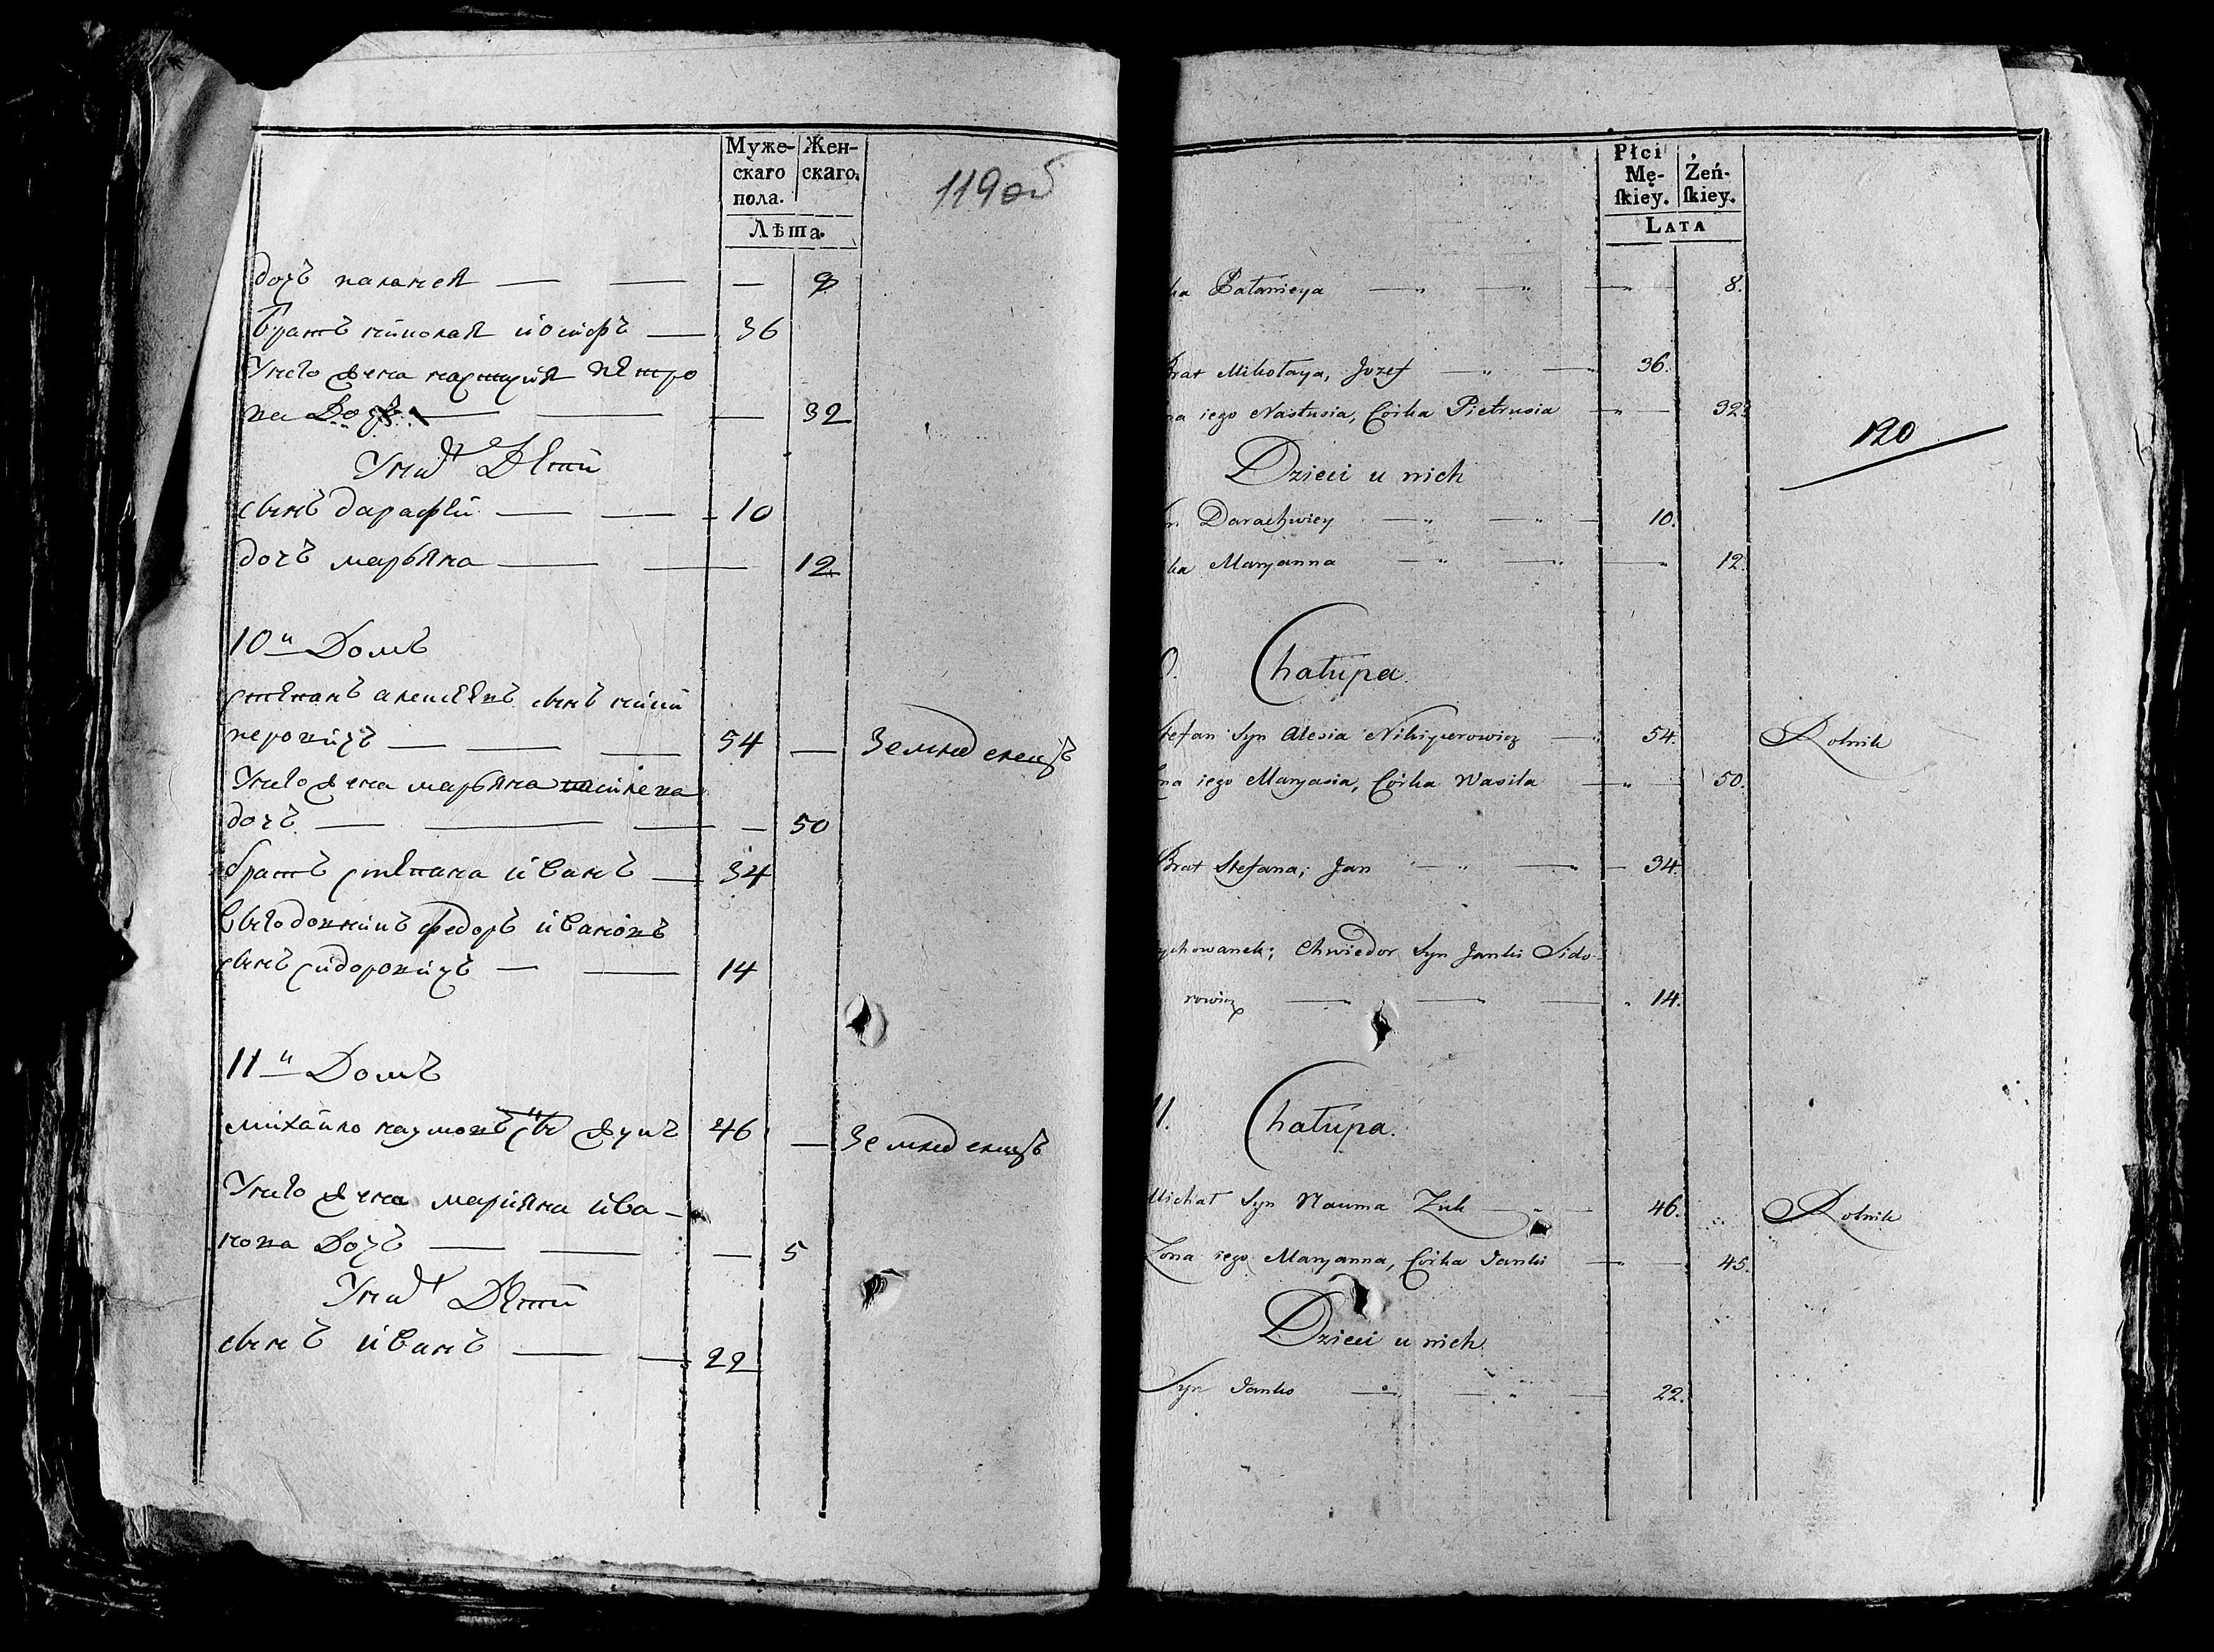 Муже-
скаго
пола.
Жен-
скаго.
Лѣта.
119 об
дочъ паланея — — — 8
братъ николая иосифъ — 36
у него жена настуся пѣтро
ва дочь — — — 32
у них дѣти
сынъ дарафѣй — — 10
дочъ марьяна — — 12
10й домъ
стѣпанъ алексѣѣвъ сынъ ники
перовичъ — — — 54 — Земледелецъ
у него жена марьяна василева
дочъ — — — — 50
братъ стѣпана иванъ — 34
федоръ ивановъ
сынъ сидоровичъ — — 14
11й домъ
михайло наумовъ сынъ жукъ 46 — Земледелецъ
у него жена мариѧна ива-
нова дочъ — — — 5
у них дѣти
сынъ иванъ — — 22
Płci
Mę-
ſkiey.
Żeń-
ſkiey.
LATA
120
ka Pałanieya — — — 8.
Brat Mikołaya, Jozef — — 36.
na iego Nastusia, Córka Pietrusia — 32.
Dzieci u nich
n Darachwiey — — 10.
ka Maryanna — — — 12.
0. Chałupa.
Stefan Syn Alesia Nikiperowicz — 54. Rolnik
na iego Maryasia, Córka Wasila — 50.
Brat Stefana, Jan — — 34.
ychowanek; Chwiedor Syn Janki Sido-
rowicz — — — 14.
11. Chałupa.
Michał Syn Nauma Żuk — 46. Rolnik
Żona iego Maryanna, Córka Janki — 45.
Dzieci u nich.
Syn Janko — — — 22.